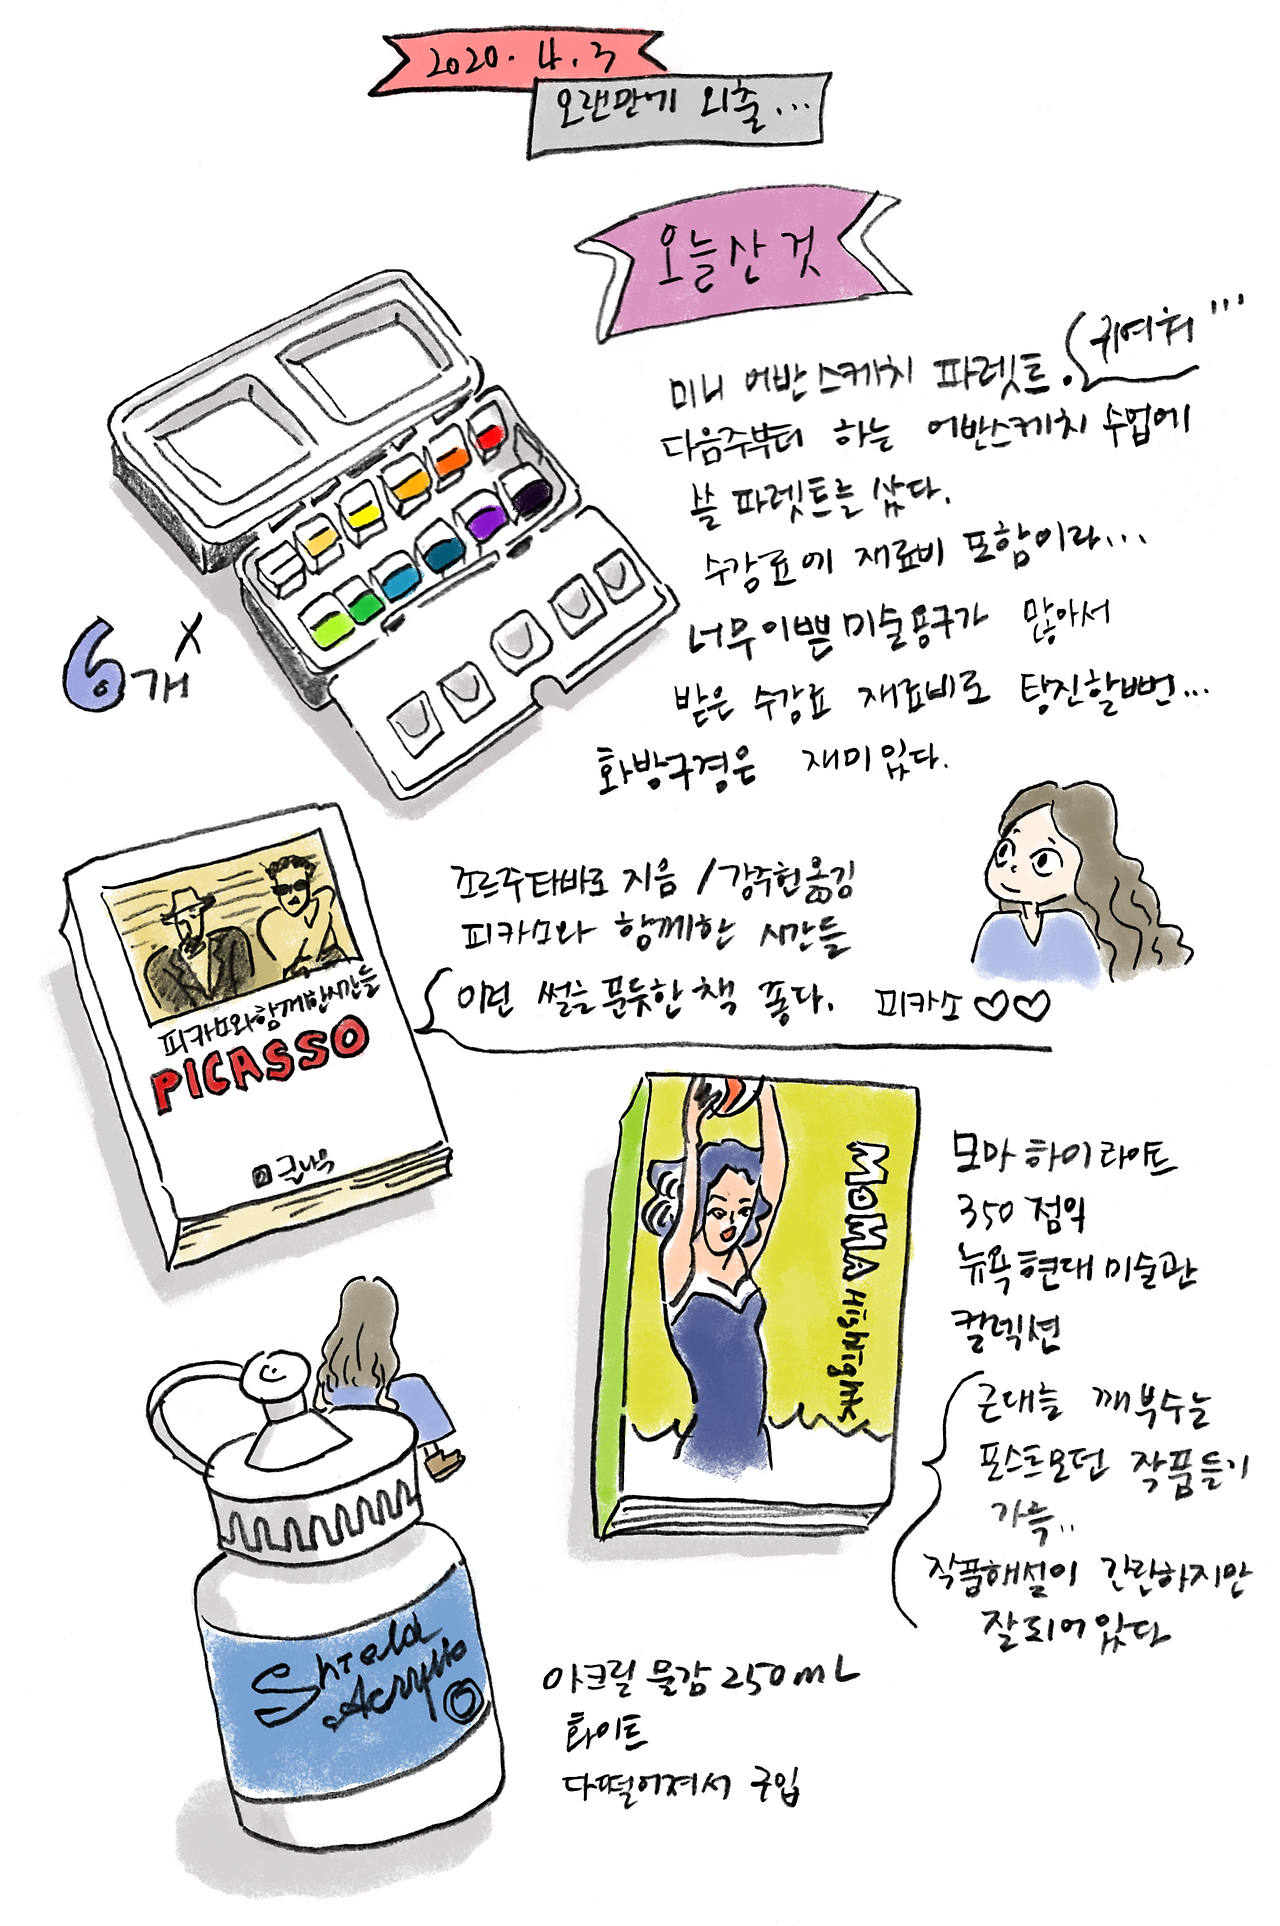 2020. 4. 3
오랜만에 외출...
오늘 산 것
미니 어반스케치 파렛트.
귀여워...
다음주부터 하는 어반스케치 수업에
쓸 파렛트를 샀다.
수강료에 재료비 포함이라...
너무 이쁜 미술용구가 많아서
받은 수강료 재료비로 탕진할뻔...
화방구경은 재미있다.
6개 X
조르주 타바로 지음 / 강주헌 옮김
피카소와 함께한 시간들
이런 썰을 푼듯한 책 좋다. 피카소 ♡♡
피카소와 함께한 시간들
PICASSO
큰나무
모마 하이라이트
350 점의
뉴욕 현대 미술관
컬렉션
MoMA Highlights
근대를 깨부수는
포스트모던 작품들이
가득..
작품해설이 간단하지만
잘 되어있다
Shield
Acrylic
아크릴 물감 250mL
화이트
다 떨어져서 구입